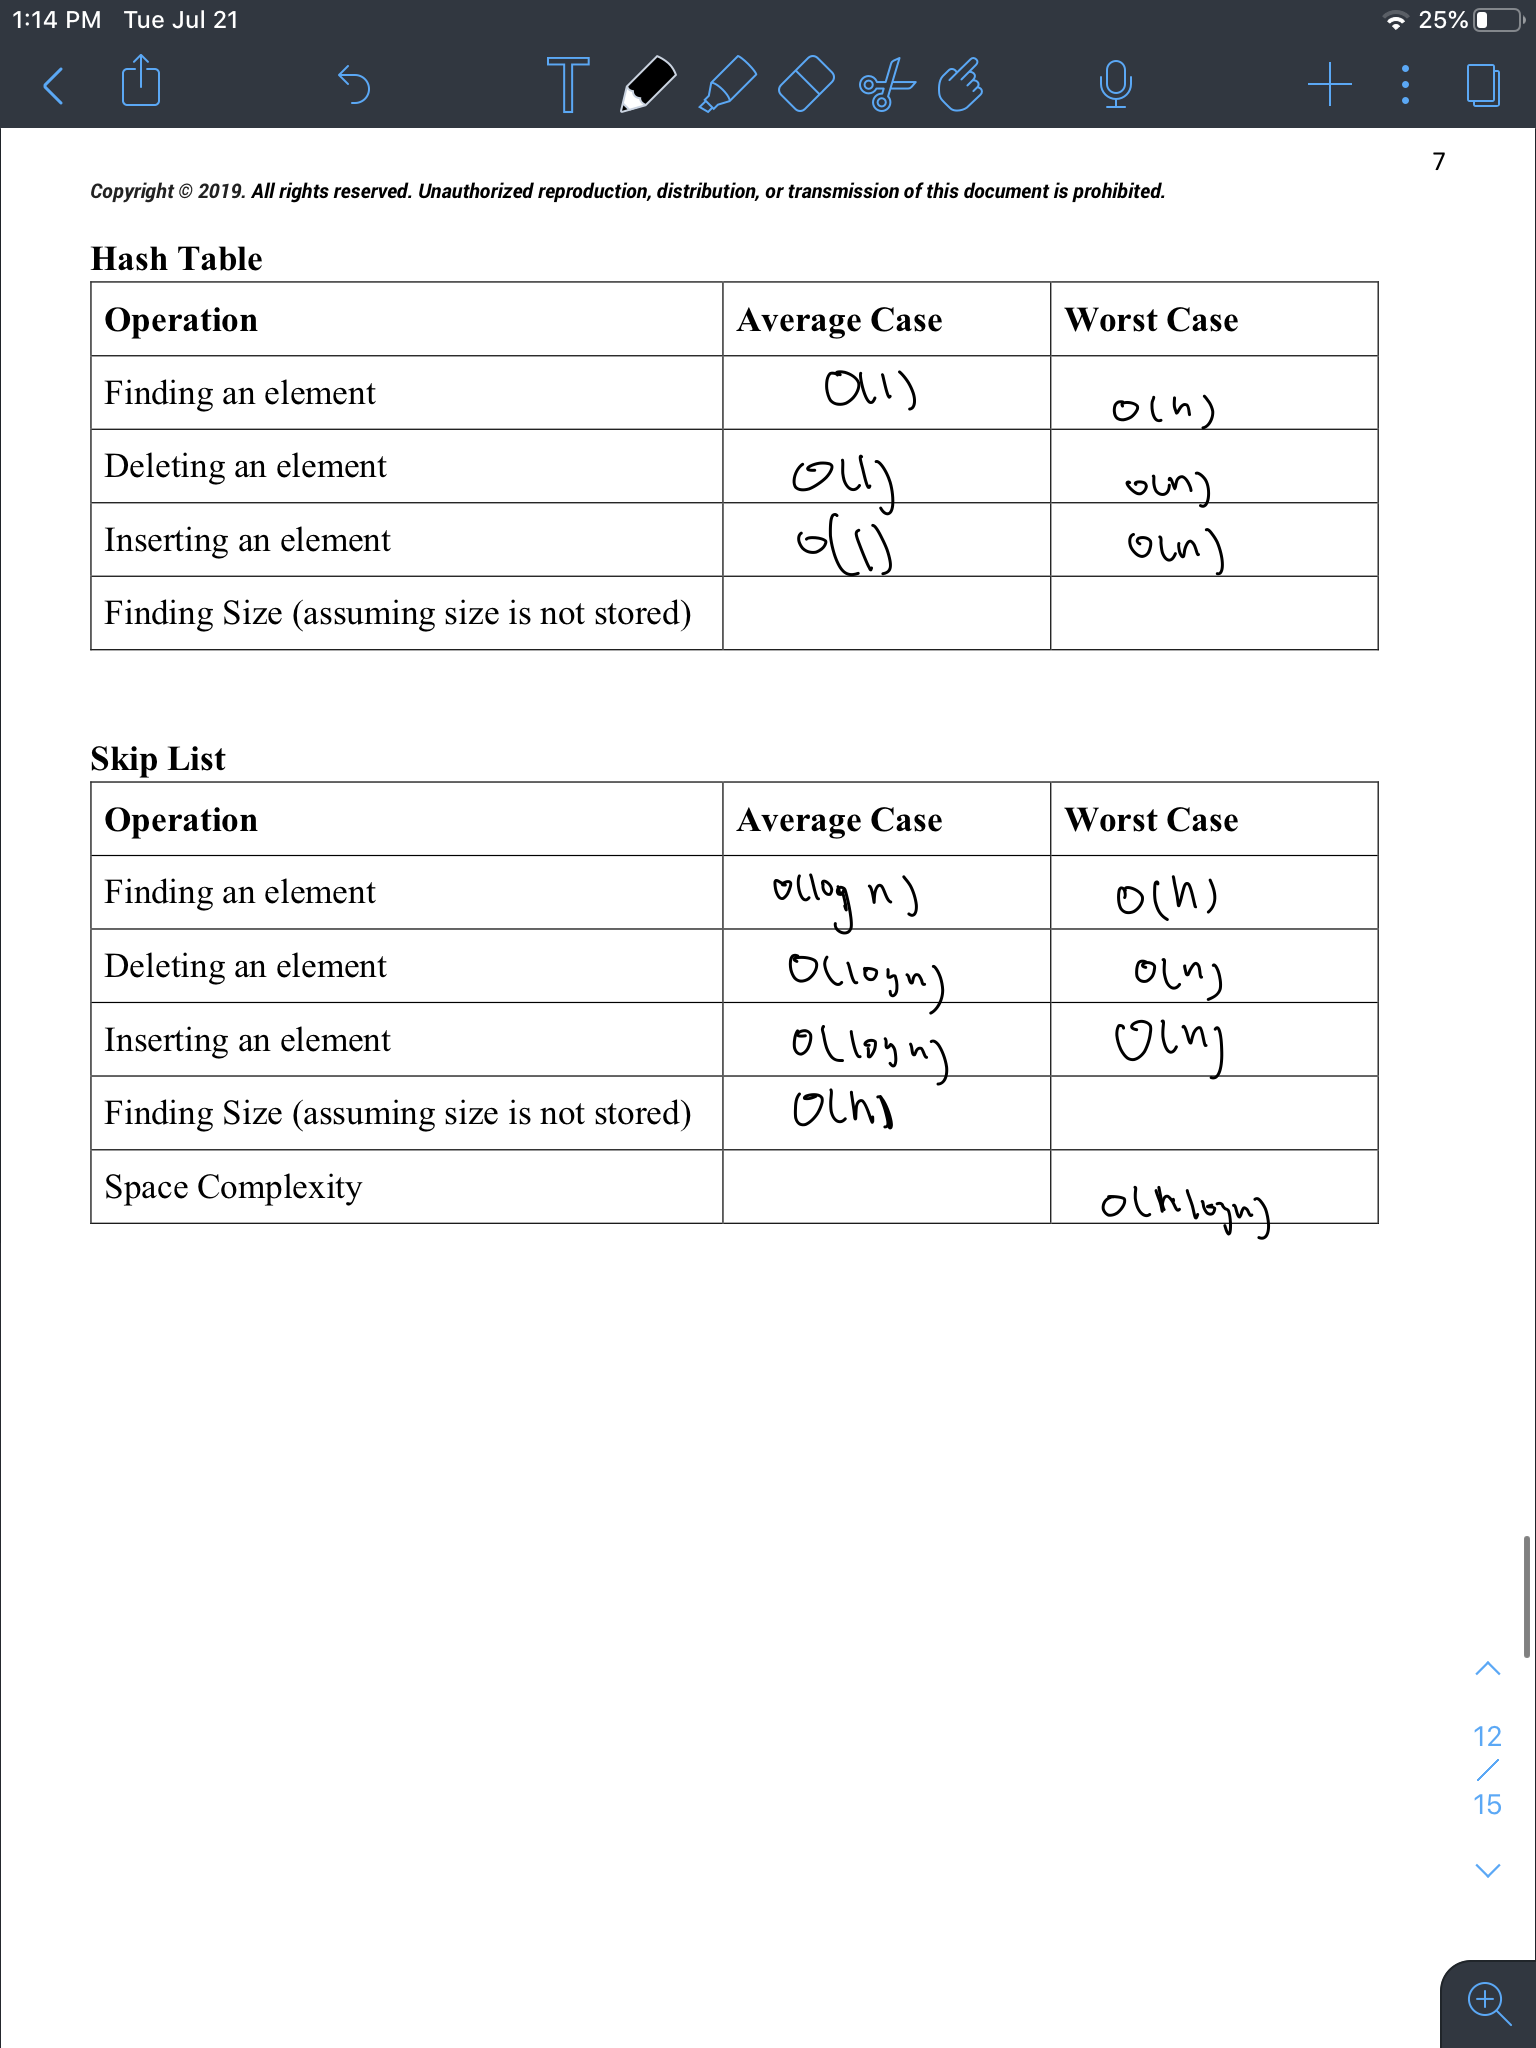 1:14 PM Tue Jul 21 25%
T
7
Copyright © 2019. All rights reserved. Unauthorized reproduction, distribution, or transmission of this document is prohibited.
Hash Table
Operation Average Case Worst Case
Finding an element O(1) O(n)
Deleting an element O(1) O(n)
Inserting an element O(1) O(n)
Finding Size (assuming size is not stored)
Skip List
Operation Average Case Worst Case
Finding an element O(log n) O(n)
Deleting an element O(log n) O(n)
Inserting an element O(log n) O(n)
Finding Size (assuming size is not stored) O(n)
Space Complexity O(n log n)
12
/
15